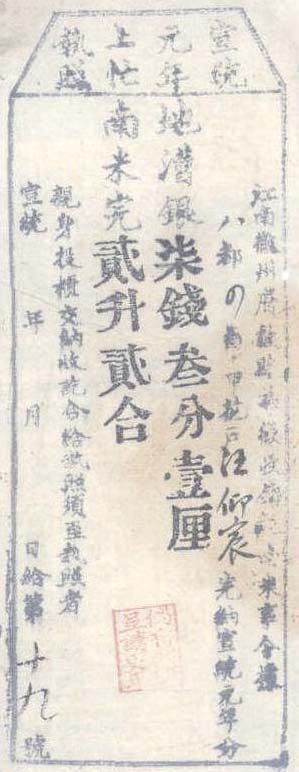 宣統
元年
上忙
執照
江南徽州府縣徵收米事今據
八都甲花戶汪仰宸完納宣統元年分
地漕銀柒錢叁分壹厘
南米完貳升貳合
親身投櫃交納收訖合給執照須至執照者
宣統 年 月 日給第十九號